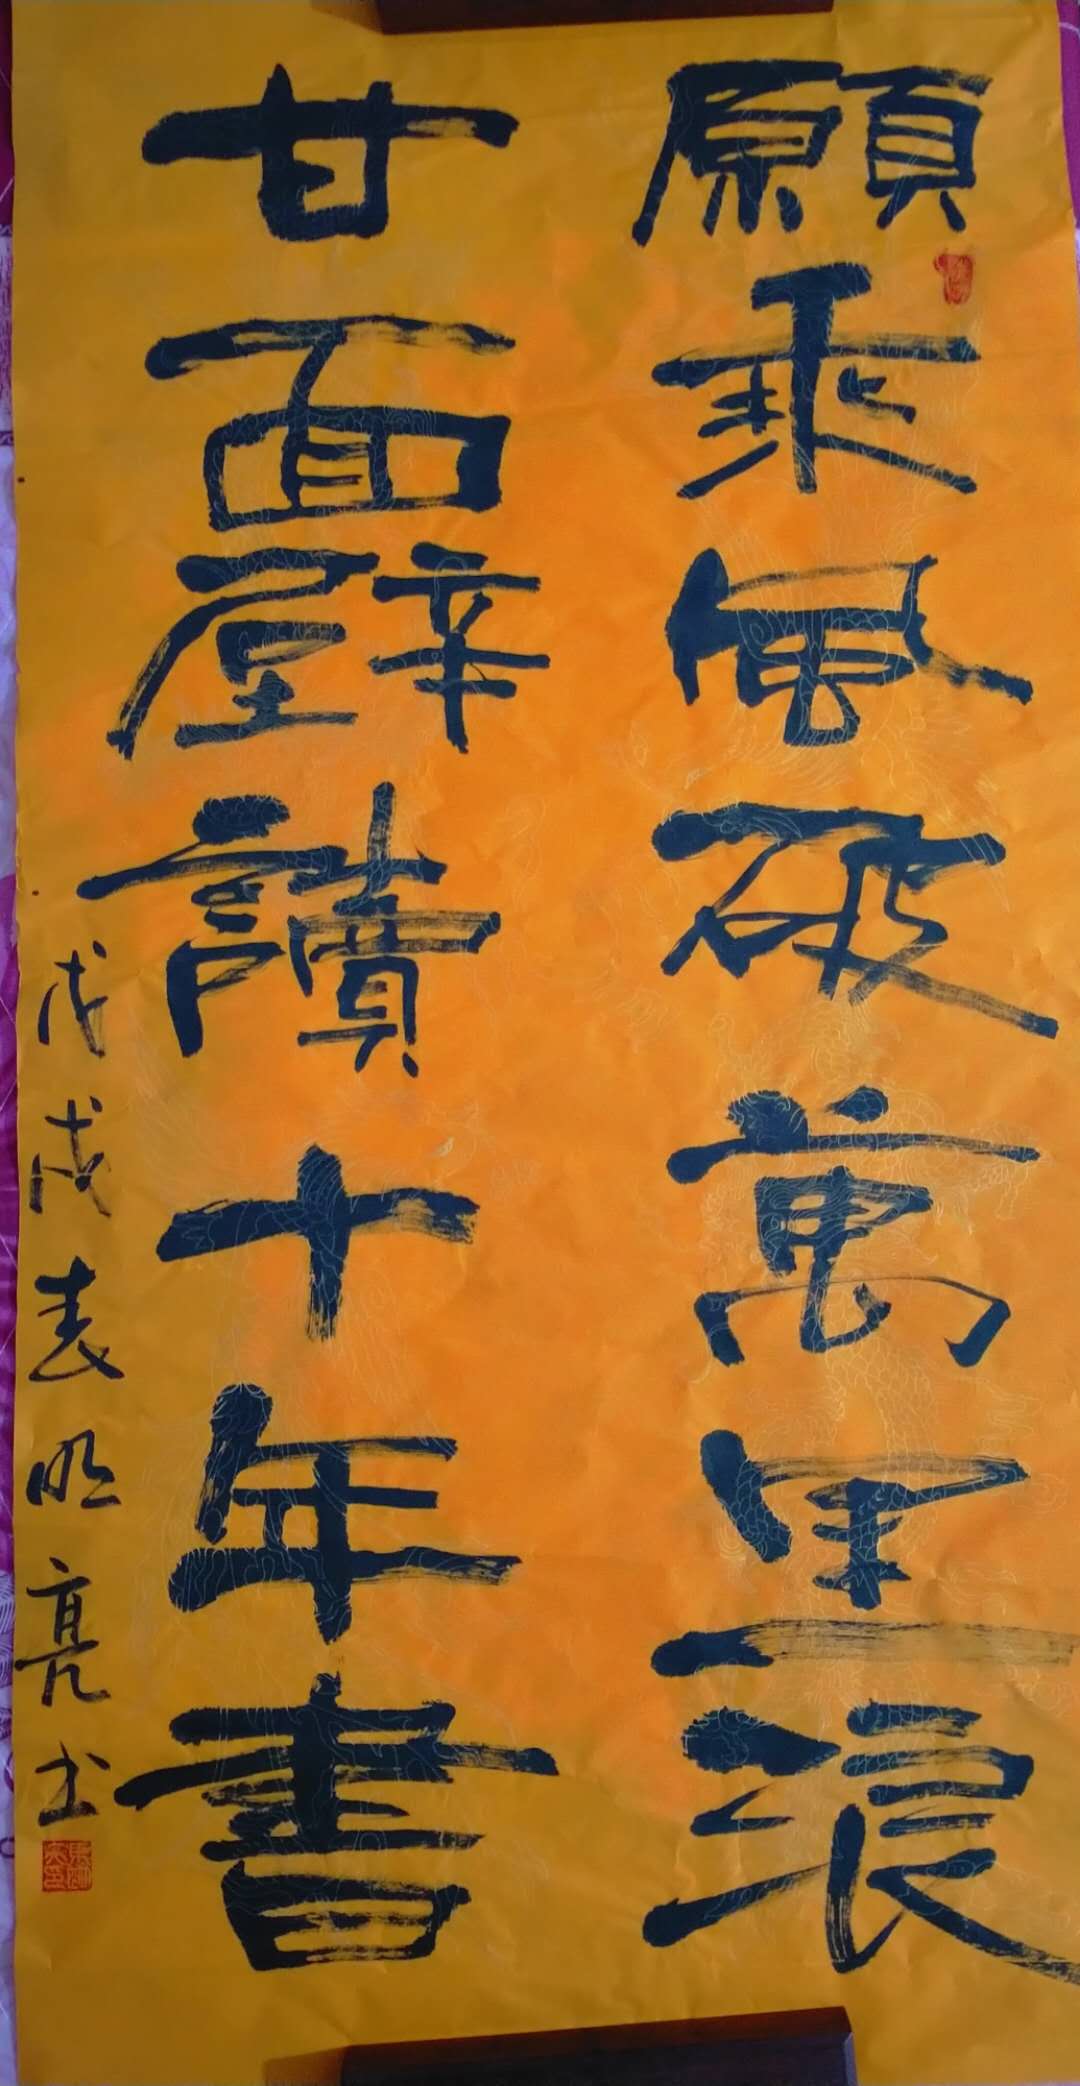 願乘風破萬里浪
甘面壁讀十年書
戊戌春明亮书